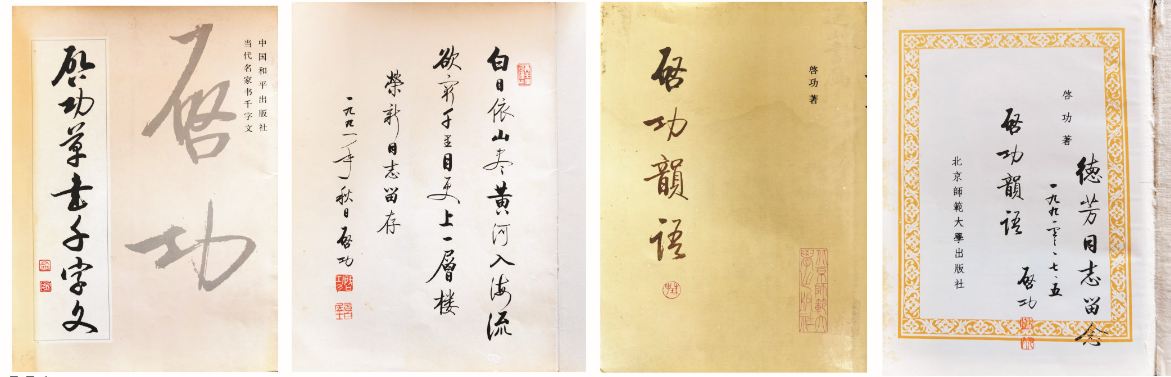 中国和平出版社
当代名家书千字文
启功
启功草书千字文
白日依山尽黄河入海流
欲穷千里目更上一層楼
榮新同志留存
一九九一年秋日启功
啓功著
启功韻语
啓功著
启功韻语
北京師範大學出版社
德芳同志留念
一九九一年、七、五
启功